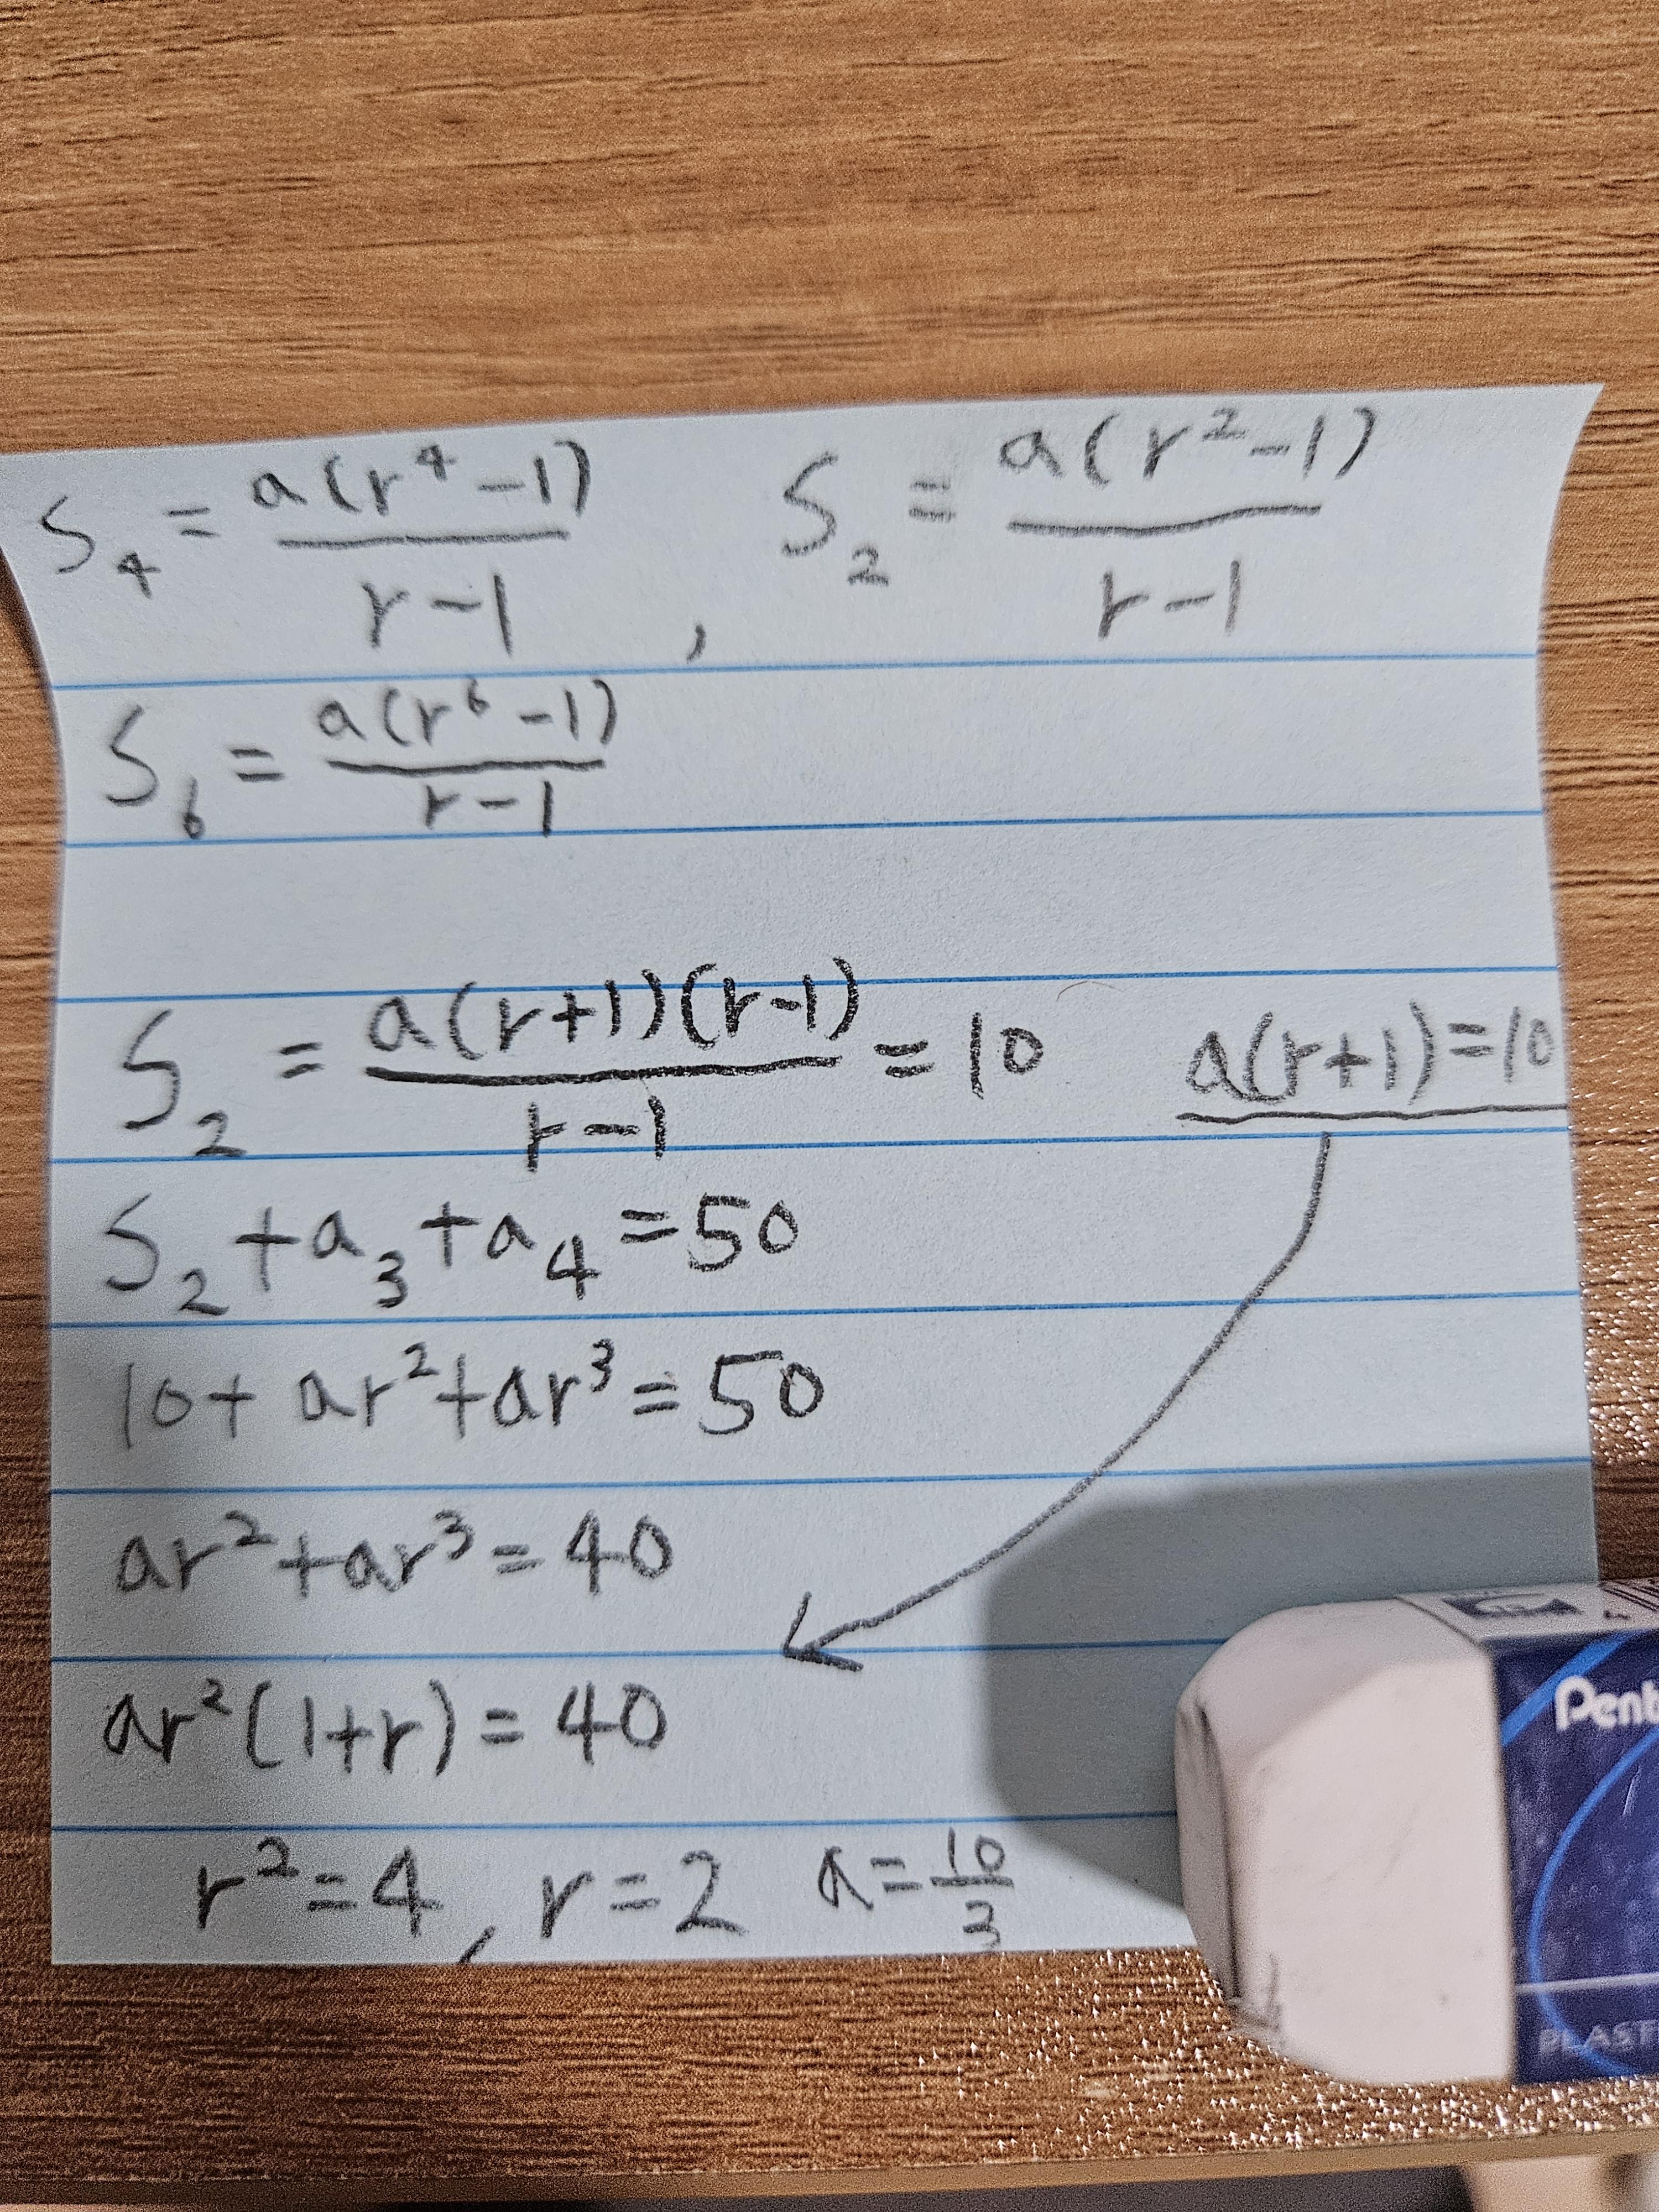 S₄ = a(r⁴-1)/r-1 , S₂ = a(r²-1)/r-1
S₆ = a(r⁶-1)/r-1
S₂ = a(r+1)(r-1)/r-1 = 10 a(r+1)=10
S₂ +a₃+a₄=50
10+ ar²+ar³=50
ar²+ar³=40
ar²(1+r)=40
r²=4, r=2 a=10/3
Pent
PLAST